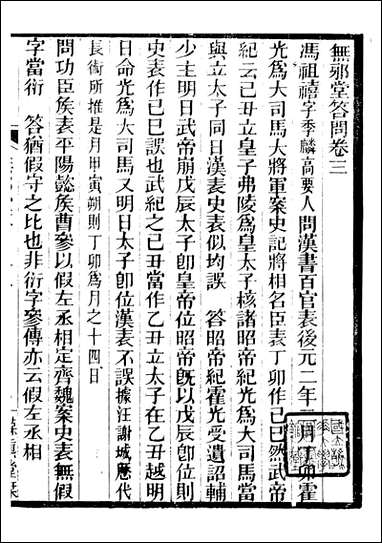 無邪堂答問卷三
馮祖禧字季麟高要人問漢書百官表後元二年二月丁卯霍
光爲大司馬大將軍案史記將相名臣表丁卯作己巳然武帝
紀云己丑立皇子弗陵爲皇太子核諸昭帝紀光爲大司馬當
與立太子同日漢表史表似均誤 答昭帝紀霍光受遺詔輔
少主明日武帝崩戊辰太子卽皇帝位昭帝旣以戊辰卽位則
史表作己巳誤也武紀之己丑當作乙丑立太子在乙丑越明
日命光爲大司馬又明日太子卽位漢表不誤據汪謝城歷代
長術所推是月甲寅朔則丁卯爲月之十四日
問功臣矦表平陽懿矦曹參以假左丞相定齊魏案史表無假
字當衍 答猶假守之比也非衍字參傳亦云假左丞相